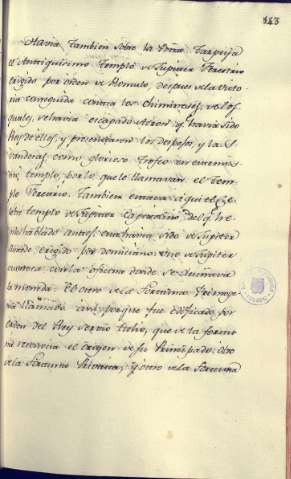 143
Havia tambien sobre la Roca Tarpeya
el Antiquissimo Templo de Jupiter Feretrio
erigido por orden de Romulo, despues de la Victo
ria conseguida contra los
quales, se havia escapado Acron que havia sido
Rey de ellos, y presentaron los despojos, y las
vanderas como glorioso trofeo en este mis
mo templo, por lo que le llamavan el Tem
plo Feretrio. Tambien estava aqui el ce
lebre templo de Jupiter Capitolino del que he
mos hablado antes;
erigido por Domiciano, uno de Jupiter
cerca la oficina donde se acuñava
la moneda. El otro de la Fortuna Primoge
nia llamada assi, porque fue edificado por
orden del Rey Servio Tulio, que de la fortu
na reconocia el origen de su Principado: Otro
de la Fortuna Privada, y otro de la Fortuna